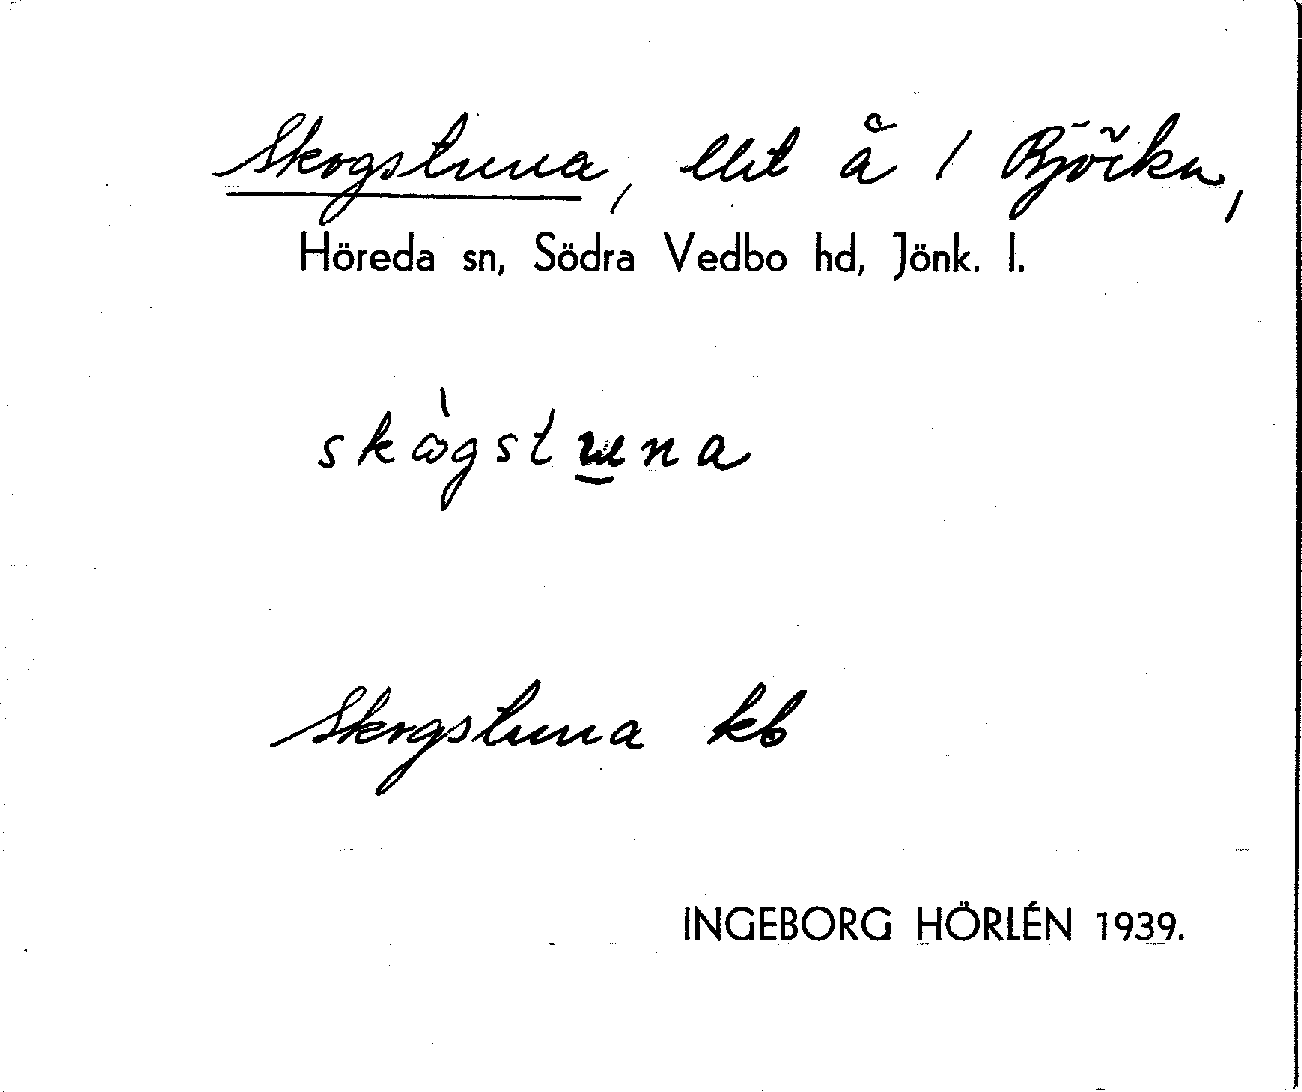 Skogstuna, llit å 1 Björka,
Höreda sn, Södra Vedbo hd, Jönk. l.
skògstuna
Skogstuna kb
INGEBORG HÖRLÉN 1939.